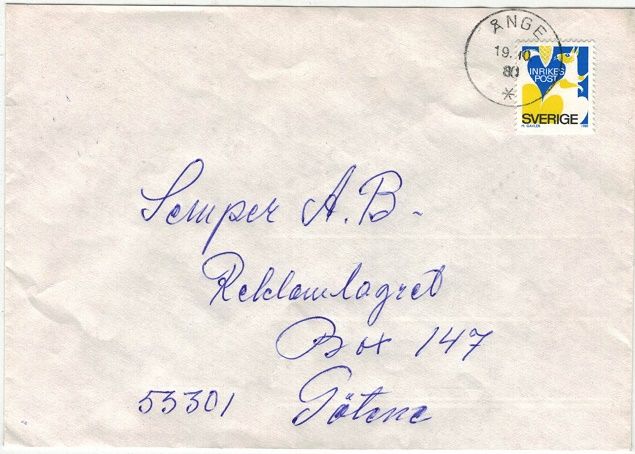 ÅNGE
19. 10
80
*
INRIKES
POST
SVERIGE
Semper A.B-
Reklamlagret
Box 147
53301 Götene